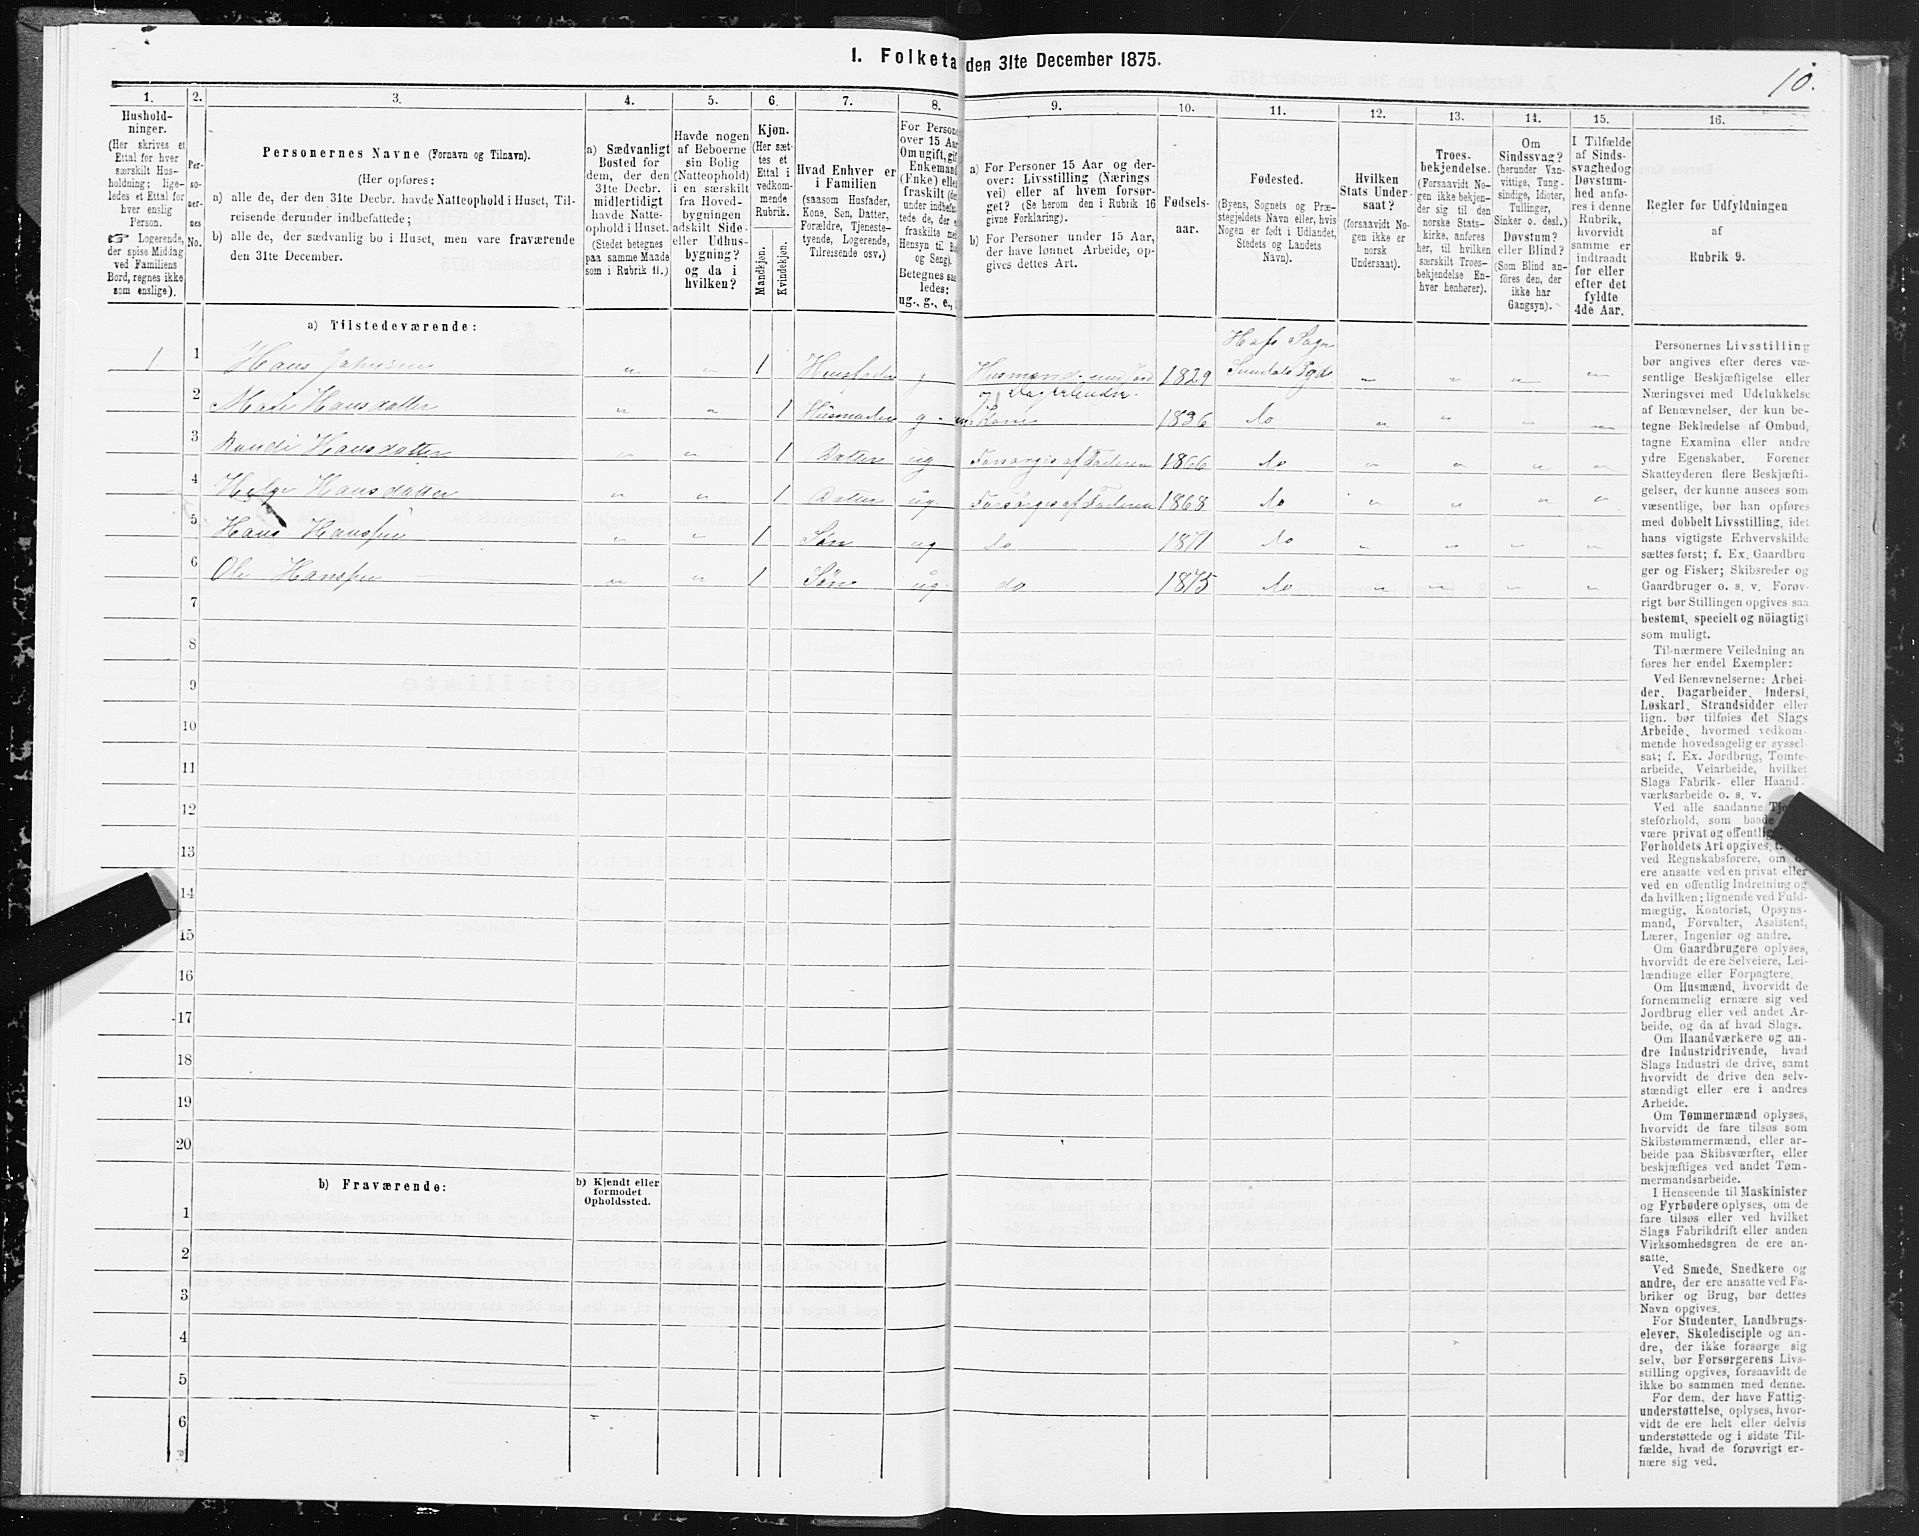 1. Folketa den 31te December 1875.
10.
1.
2.
3.
4.
5.
6.
7.
8.
9.
10.
11.
12.
13.
14.
15.
16.
Hushold-
ninger.
(Her skrives et
Ettal for hver
særskilt Hus-
holdning; lige-
ledes et Ettal for
hver enslig
Person.
☞ Logerende,
der spise Middag
ved Familiens
Bord, regnes ikke
som enslige).
Per-
so-
ner-
nes
No.
Personernes Navne (Fornavn og Tilnavn).
(Her opføres:
a) alle de, der den 31te Decbr. havde Natteophold i Huset, Til-
reisende derunder indbefattede;
b) alle de, der sædvanlig bo i Huset, men vare fraværende
den 31te December.
a) Sædvanligt
Bosted for
dem, der den
31te Decbr.
midlertidigt
havde Natte-
ophold i Huset.
(Stedet betegnes
paa samme Maade
som i Rubrik 11.)
Havde nogen
af Beboerne
sin Bolig
(Natteophold)
i en særskilt
fra Hoved-
bygningen
adskilt Side-
eller Udhus-
bygning?
og da i
hvilken?
Kjøn.
(Her sæt-
tes et
Ettal i
vedkom-
mende
Rubrik.
Mandkjøn.
Kvindekjøn.
Hvad Enhver er
i Familien
(saasom Husfader,
Kone, Søn, Datter,
Forældre, Tjeneste-
tyende, Logerende,
Tilreisende osv.)
For Persone
over 15 Aar
Om ugift, gif
Enkemand
(Enke) elle
fraskilt (de
under indbefat-
tede de, de
fraskilte me
Hensyn til Bo
og Seng).
Betegnes saa
ledes:
ug., g., e.,
a) For Personer 15 Aar og der-
over: Livsstilling (Nærings
vei) eller af hvem forsør-
get? (Se herom den i Rubrik 16
givne Forklaring).
b) For Personer under 15 Aar,
der have lønnet Arbeide, op-
gives dettes Art.
Fødsels-
aar.
Fødested.
(Byens, Sognets og Præ-
stegjeldets Navn eller, hvis
Nogen er født i Udlandet,
Stedets og Landets
Navn).
Hvilken
Stats Under-
saat?
(forsaavidt No-
gen ikke er
norsk
Undersaat).
Troes-
bekjendelse.
(Forsaavidt No-
gen ikke bekjen-
der sig til den
norske Stats-
kirke, anføres
her, til hvilken
særskilt Troes-
bekjendelse En-
hver henhører).
Om
Sindssvag?
(herunder Van-
vittige, Tung-
sindige, Idioter,
Tullinger,
Sinker o. desl.)
Døvstum?
eller Blind?
(Som Blind an-
føres den, der
ikke har
Gangsyn).
I Tilfælde
af Sinds-
svaghedog
Døvstum-
hed anfø-
res i denne
Rubrik,
hvorvidt
samme er
indtraadt
før eller
efter det
fyldte
4de Aar.
Regler for Udfyldningen
af
Rubrik 9.
a) Tilstedeværende:
Hafs Sogn
1 1 Hans Johnsen " " 1 Husfader g Husmand med Jord 1829 Sundals Pgd " " " "
og Dagarbeider.
2 Mari Hansdatter " " 1 Husmoder g Kone 1836 do " " " "
3 Randi Hansdatter " " 1 Datter ug Forsørges af Faderen 1866 do " " " "
4 Hansdatter " " 1 Datter ug Forsørges af Faderen 1868 do " " " "
5 Hans Hanssen " " 1 Søn ug do 1871 do " " " "
6 Ole Hanssen " " 1 Søn ug do 1875 do " " " "
7
8
9
10
11
12
13
14
15
16
17
18
19
20
b) Fraværende:
b) Kjendt eller
formodet
Opholdssted.
1
2
3
4
5
6
Personernes Livsstilling
bør angives efter deres væ-
sentlige Beskjæftigelse eller
Næringsvei med Udelukkelse
af Benævnelser, der kun be-
tegne Beklædelse af Ombud,
tagne Examina eller andre
ydre Egenskaber. Forener
Skatteyderen flere Beskjæfti-
gelser, der kunne ansees som
væsentlige, bør han opføres
med dobbelt Livsstilling, idet
hans vigtigste Erhvervskilde
sættes først; f. Ex. Gaardbru
ger og Fisker; Skibsreder og
Gaardbruger o. s. v. Forøv-
rigt bør Stillingen opgives saa
bestemt, specielt og nöiagtigt
som muligt.
Til-nærmere Veiledning an
føres her endel Exempler:
Ved Benævnelserne: Arbei-
der, Dagarbeider, Inderst,
Løskarl, Strandsidder eller
lign. bør tilføies det Slags
Arbeide, hvormed vedkom-
mende hovedsagelig er syssel-
sat; f. Ex. Jordbrug, Tomte-
arbeide, Veiarbeide, hvilket
Slags Fabrik- eller Haand-
værksarbeide o. s. v.
Ved alle saadanne Tje
steforhold, som baade
være privat og offentlig
Forholdets Art opgives,
ved Regnskabsførere, om
ere ansatte ved en privat eller
ved en offentlig Indretning og
da hvilken; lignende ved Fuld-
mægtig, Kontorist, Opsyns-
mand, Forvalter, Assistent,
Lærer, Ingeniør og andre.
Om Gaardbrugere oplyses,
hvorvidt de ere Selveiere, Lei-
lændinge eller Forpagtere.
Om Husmænd, hvorvidt de
fornemmelig ernære sig ved
Jordbrug eller ved andet Ar-
beide, og da af hvad Slags.
Om Haandværkere og an-
dre Industridrivende, hvad
Slags Industri de drive, samt
hvorvidt de drive den selv-
stændigt eller ere i andres
Arbeide.
Om Tømmermænd oplyses,
hvorvidt de fare tilsøs som
Skibstømmermænd, eller ar-
beide paa Skibsværfter, eller
beskjæftiges ved andet Tøm-
mermandsarbeide.
I Henseende til Maskinister
og Fyrbødere oplyses, om de
fare tilsøs eller ved hvilket
Slags Fabrikdrift eller anden
Virksomhedsgren de ere an-
satte.
Ved Smede, Snedkere og
andre, der ere ansatte ved Fa-
briker og Brug, bør dettes
Navn opgives.
For Studenter, Landbrugs-
elever, Skoledisciple og an-
dre, der ikke forsørge sig
selv, bør Forsørgerens Livs-
stilling opgives, forsaavidt de
ikke bo sammen med denne.
For dem, der have Fattig-
understøttelse, oplyses, hvor-
vidt de ere helt eller delvis
understøttede og i sidste Til-
fælde, hvad de forøvrigt er-
nære sig ved.